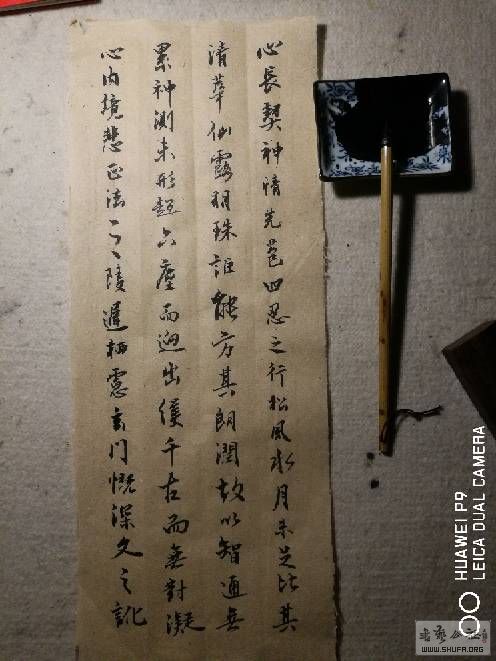 心長契神情先苞四忍之行松風水月未足比其
清華仙露明珠詎能方其朗潤故以智通無
累神測未形超六塵而迥出隻千古而無對凝
心內境悲正法之陵遲栖慮玄門慨深文之訛
HUAWEI P9
LEICA DUAL CAMERA
书艺公社
WWW.SHUFA.ORG